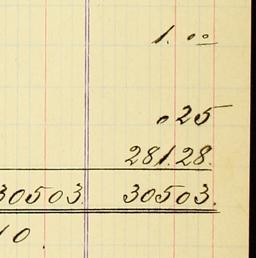 1.00
.25
281.28.
30503. 30503.
10